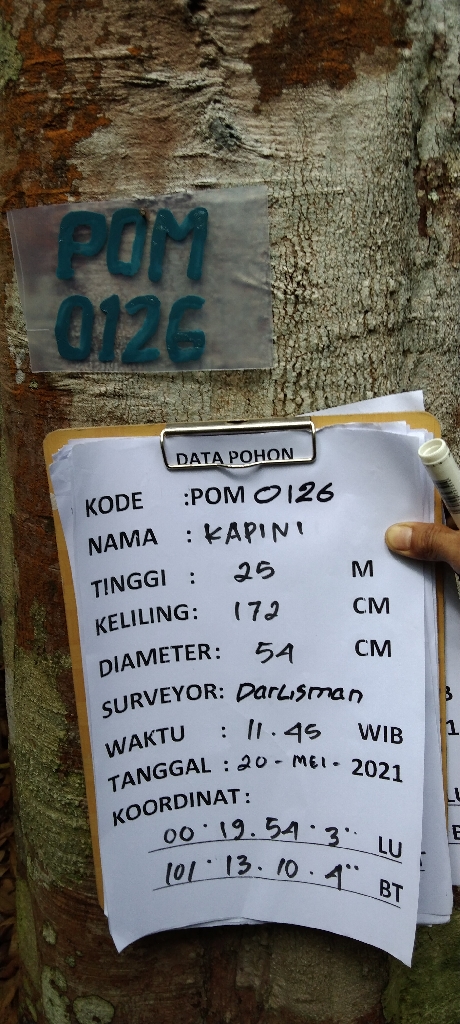 POM
0126
DATA POHON
KODE :POM 0126
NAMA : KAPINI
TINGGI : 25 M
KELILING: 172 CM
DIAMETER: 54 CM
SURVEYOR: Darlisman
WAKTU : 11.45 WIB
TANGGAL : 20 - MEI - 2021
KOORDINAT:
00° 19. 54. 3" LU
101° 13. 10. 4" BT